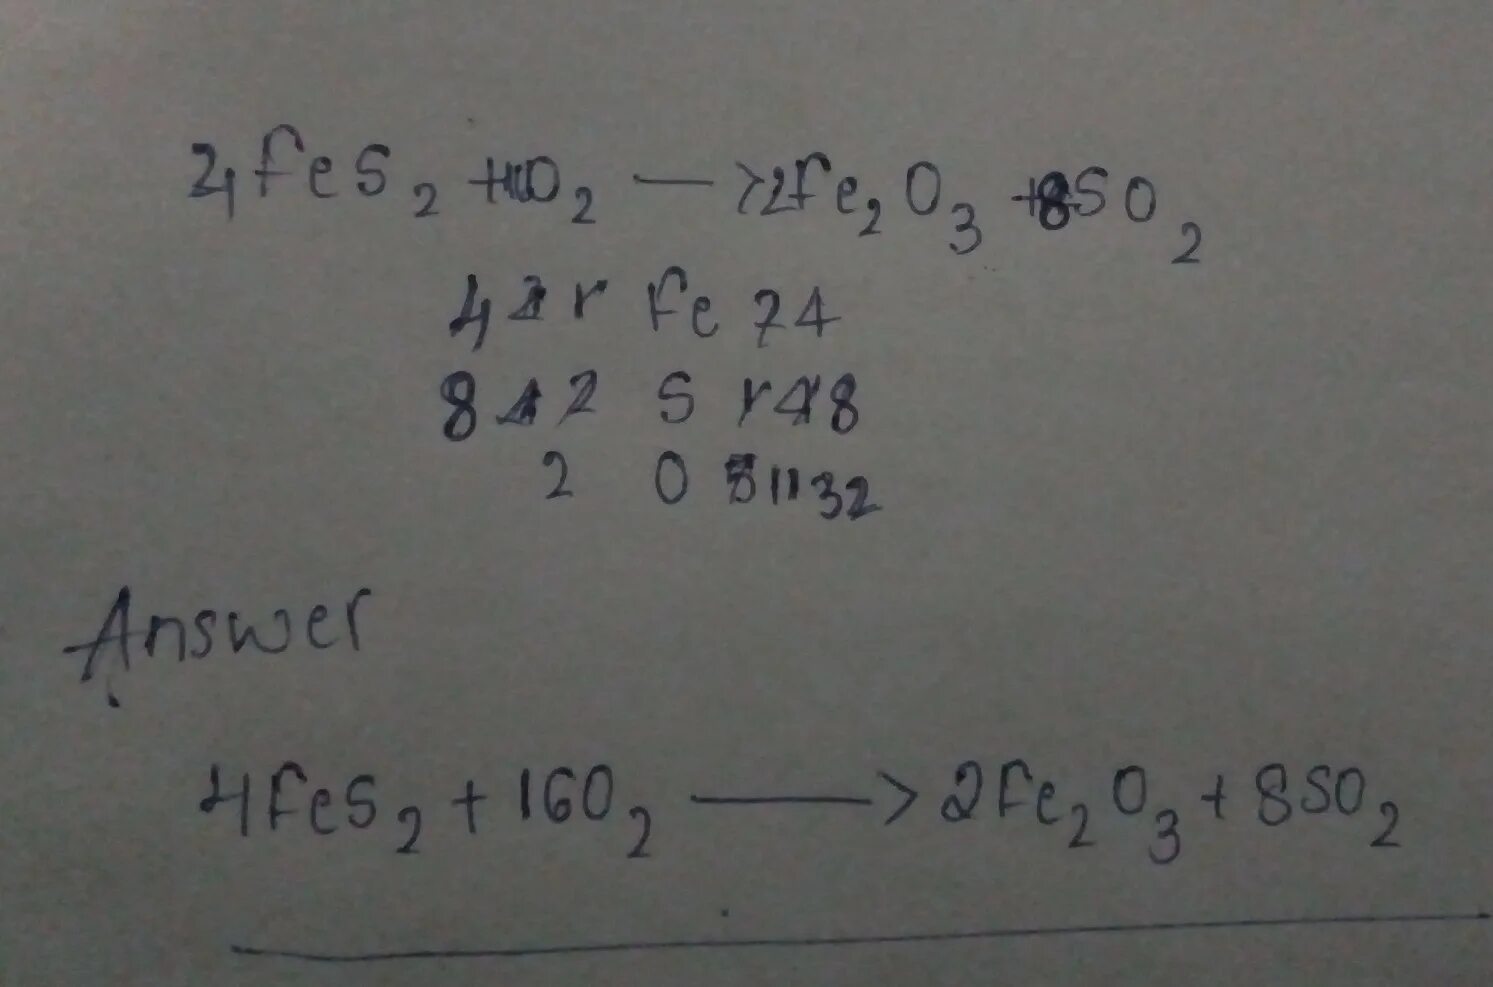 4FeS2 + O2 —> 2Fe2O3 + 8SO2
4 Fe 4
8 2 S 8
2 O 32
Answer
4FeS2 + 16O2 —> 2Fe2O3 + 8SO2